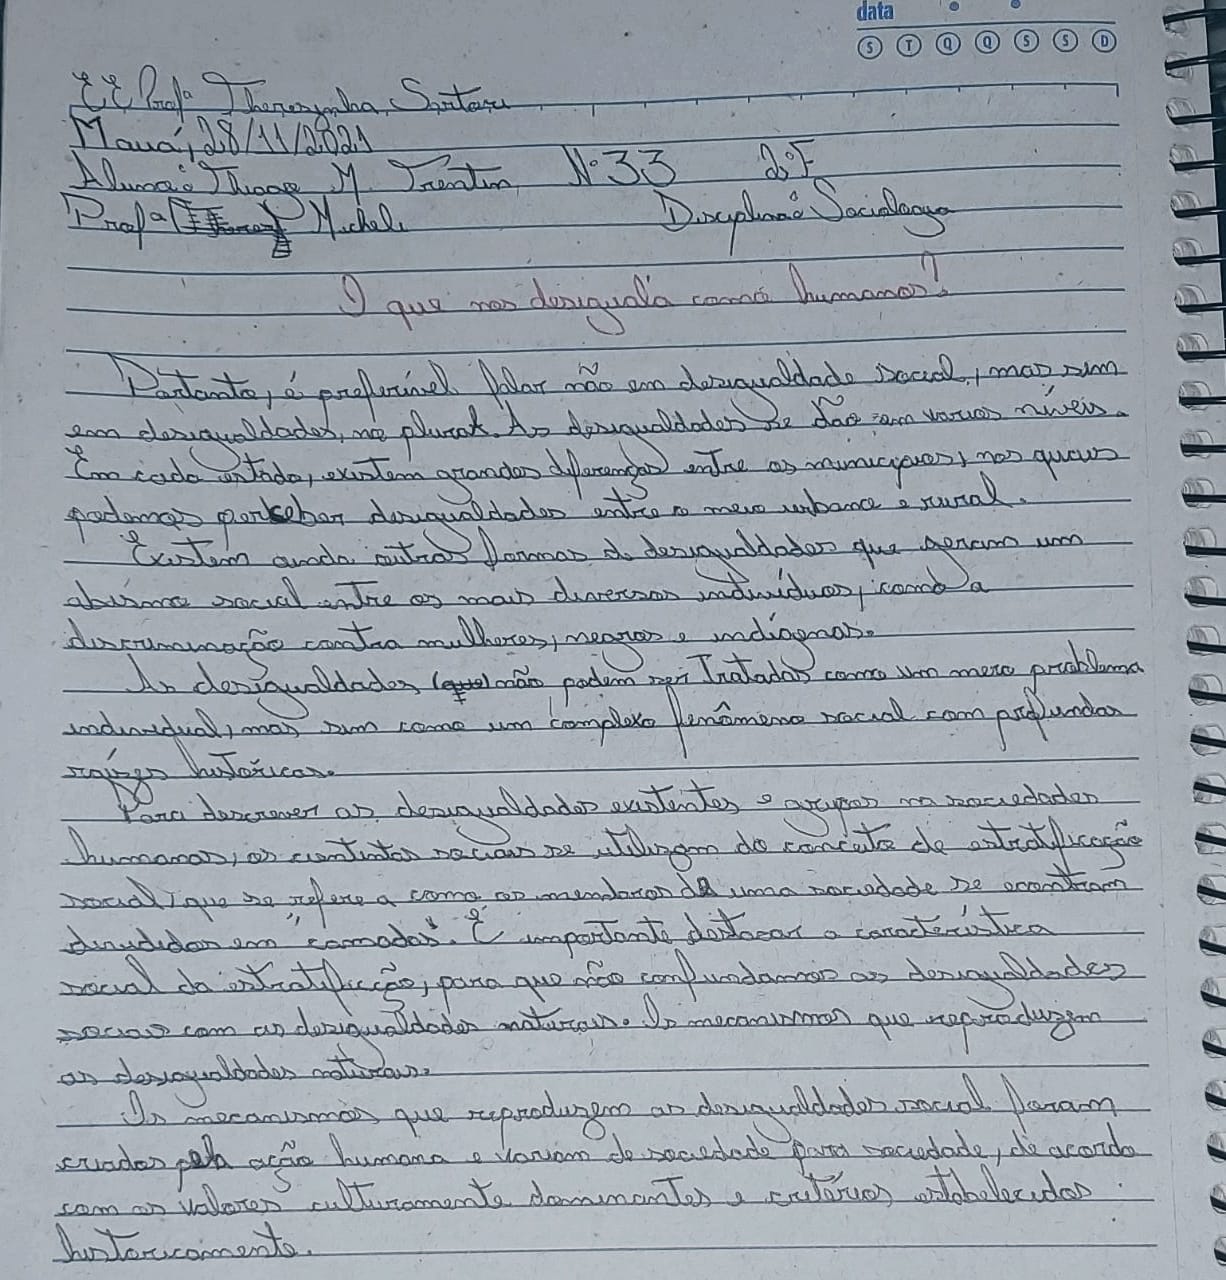 data
S T Q Q S S D
EE Profª Therezinha Sartori
Mauá, 28/11/2021
Aluno: Thiago M. Trentin Nº 33 2ºF
Profª Micheli Disciplina: Sociologia
O que nos desiguala como humanos?
Portanto, é preferível falar não em desigualdade social, mas sim
em desigualdades, no plural. As desigualdades se dão em varios níveis.
Em cada estado, existem grandes diferenças entre os municipios, nos quais
podemos perceber desigualdades entre o meio urbano e rural.
Existem ainda outras formas de desigualdades que geram um
abismo social entre os mais diversos indivíduos, como a
discriminação contra mulheres, negros e indígenas.
As desigualdades (que) não podem ser tratadas como um mero problema
individual, mas sim como um complexo fenômeno social com profundas
raízes históricas.
Para descrever as desigualdades existentes e grupos na sociedades
humanas, os cientistas sociais se utilizam do conceito de estratificação
social, que se refere a como os membros de uma sociedade se econtram
divididos em "camadas". É importante destacar a característica
social da estratificção, para que não confundamos as desigualdades
sociais com as desigualdades naturais. Os mecanismos que reproduzem
as desigualdades naturais.
Os mecanismos que reproduzem as desigualdades social foram
criados pela ação humana e variam de sociedade para sociedade, de acordo
com os valores culturamente dominantes e critérios estabelecidos
historicamente.